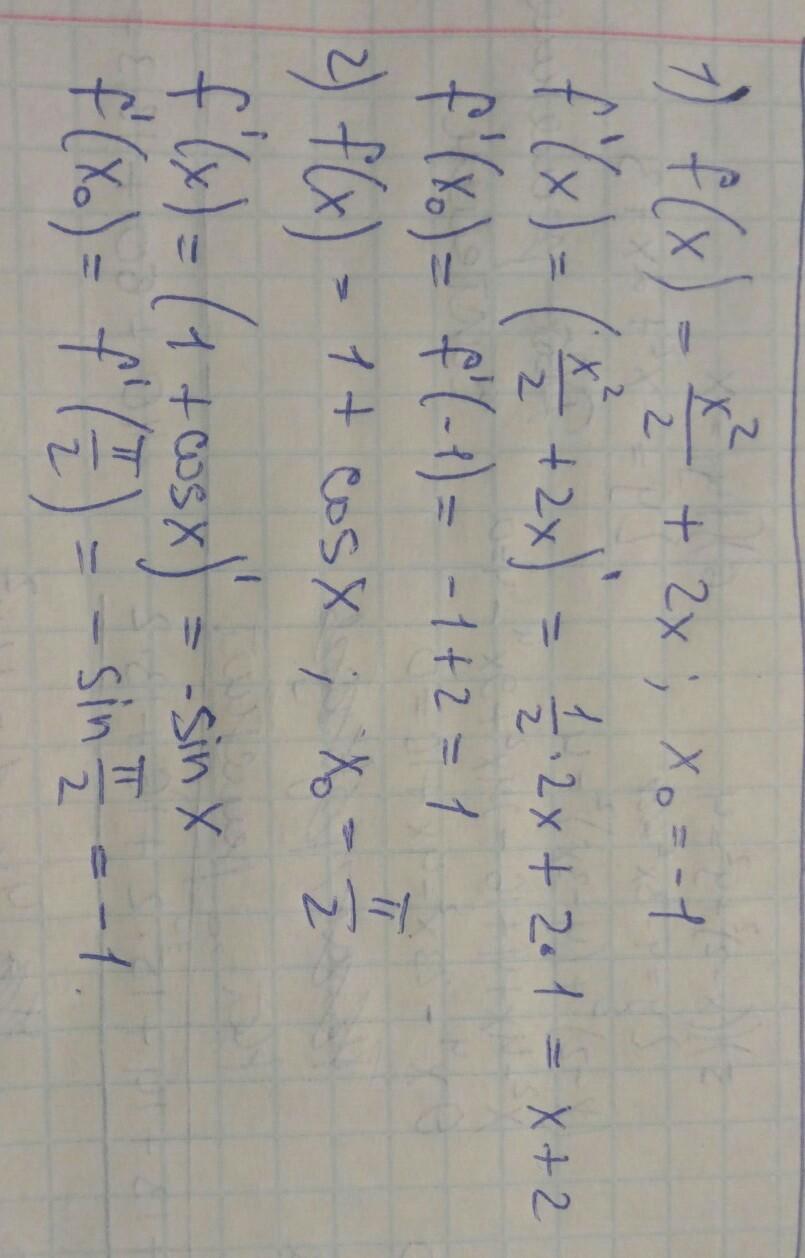 1) f(x) = x²/2 + 2x; x₀ = -1
f'(x) = (x²/2 + 2x)' = 1/2 · 2x + 2 · 1 = x + 2
f'(x₀) = f'(-1) = -1 + 2 = 1
2) f(x) = 1 + cos x; x₀ = π/2
f'(x) = (1 + cos x)' = -sin x
f'(x₀) = f'(π/2) = -sin π/2 = -1